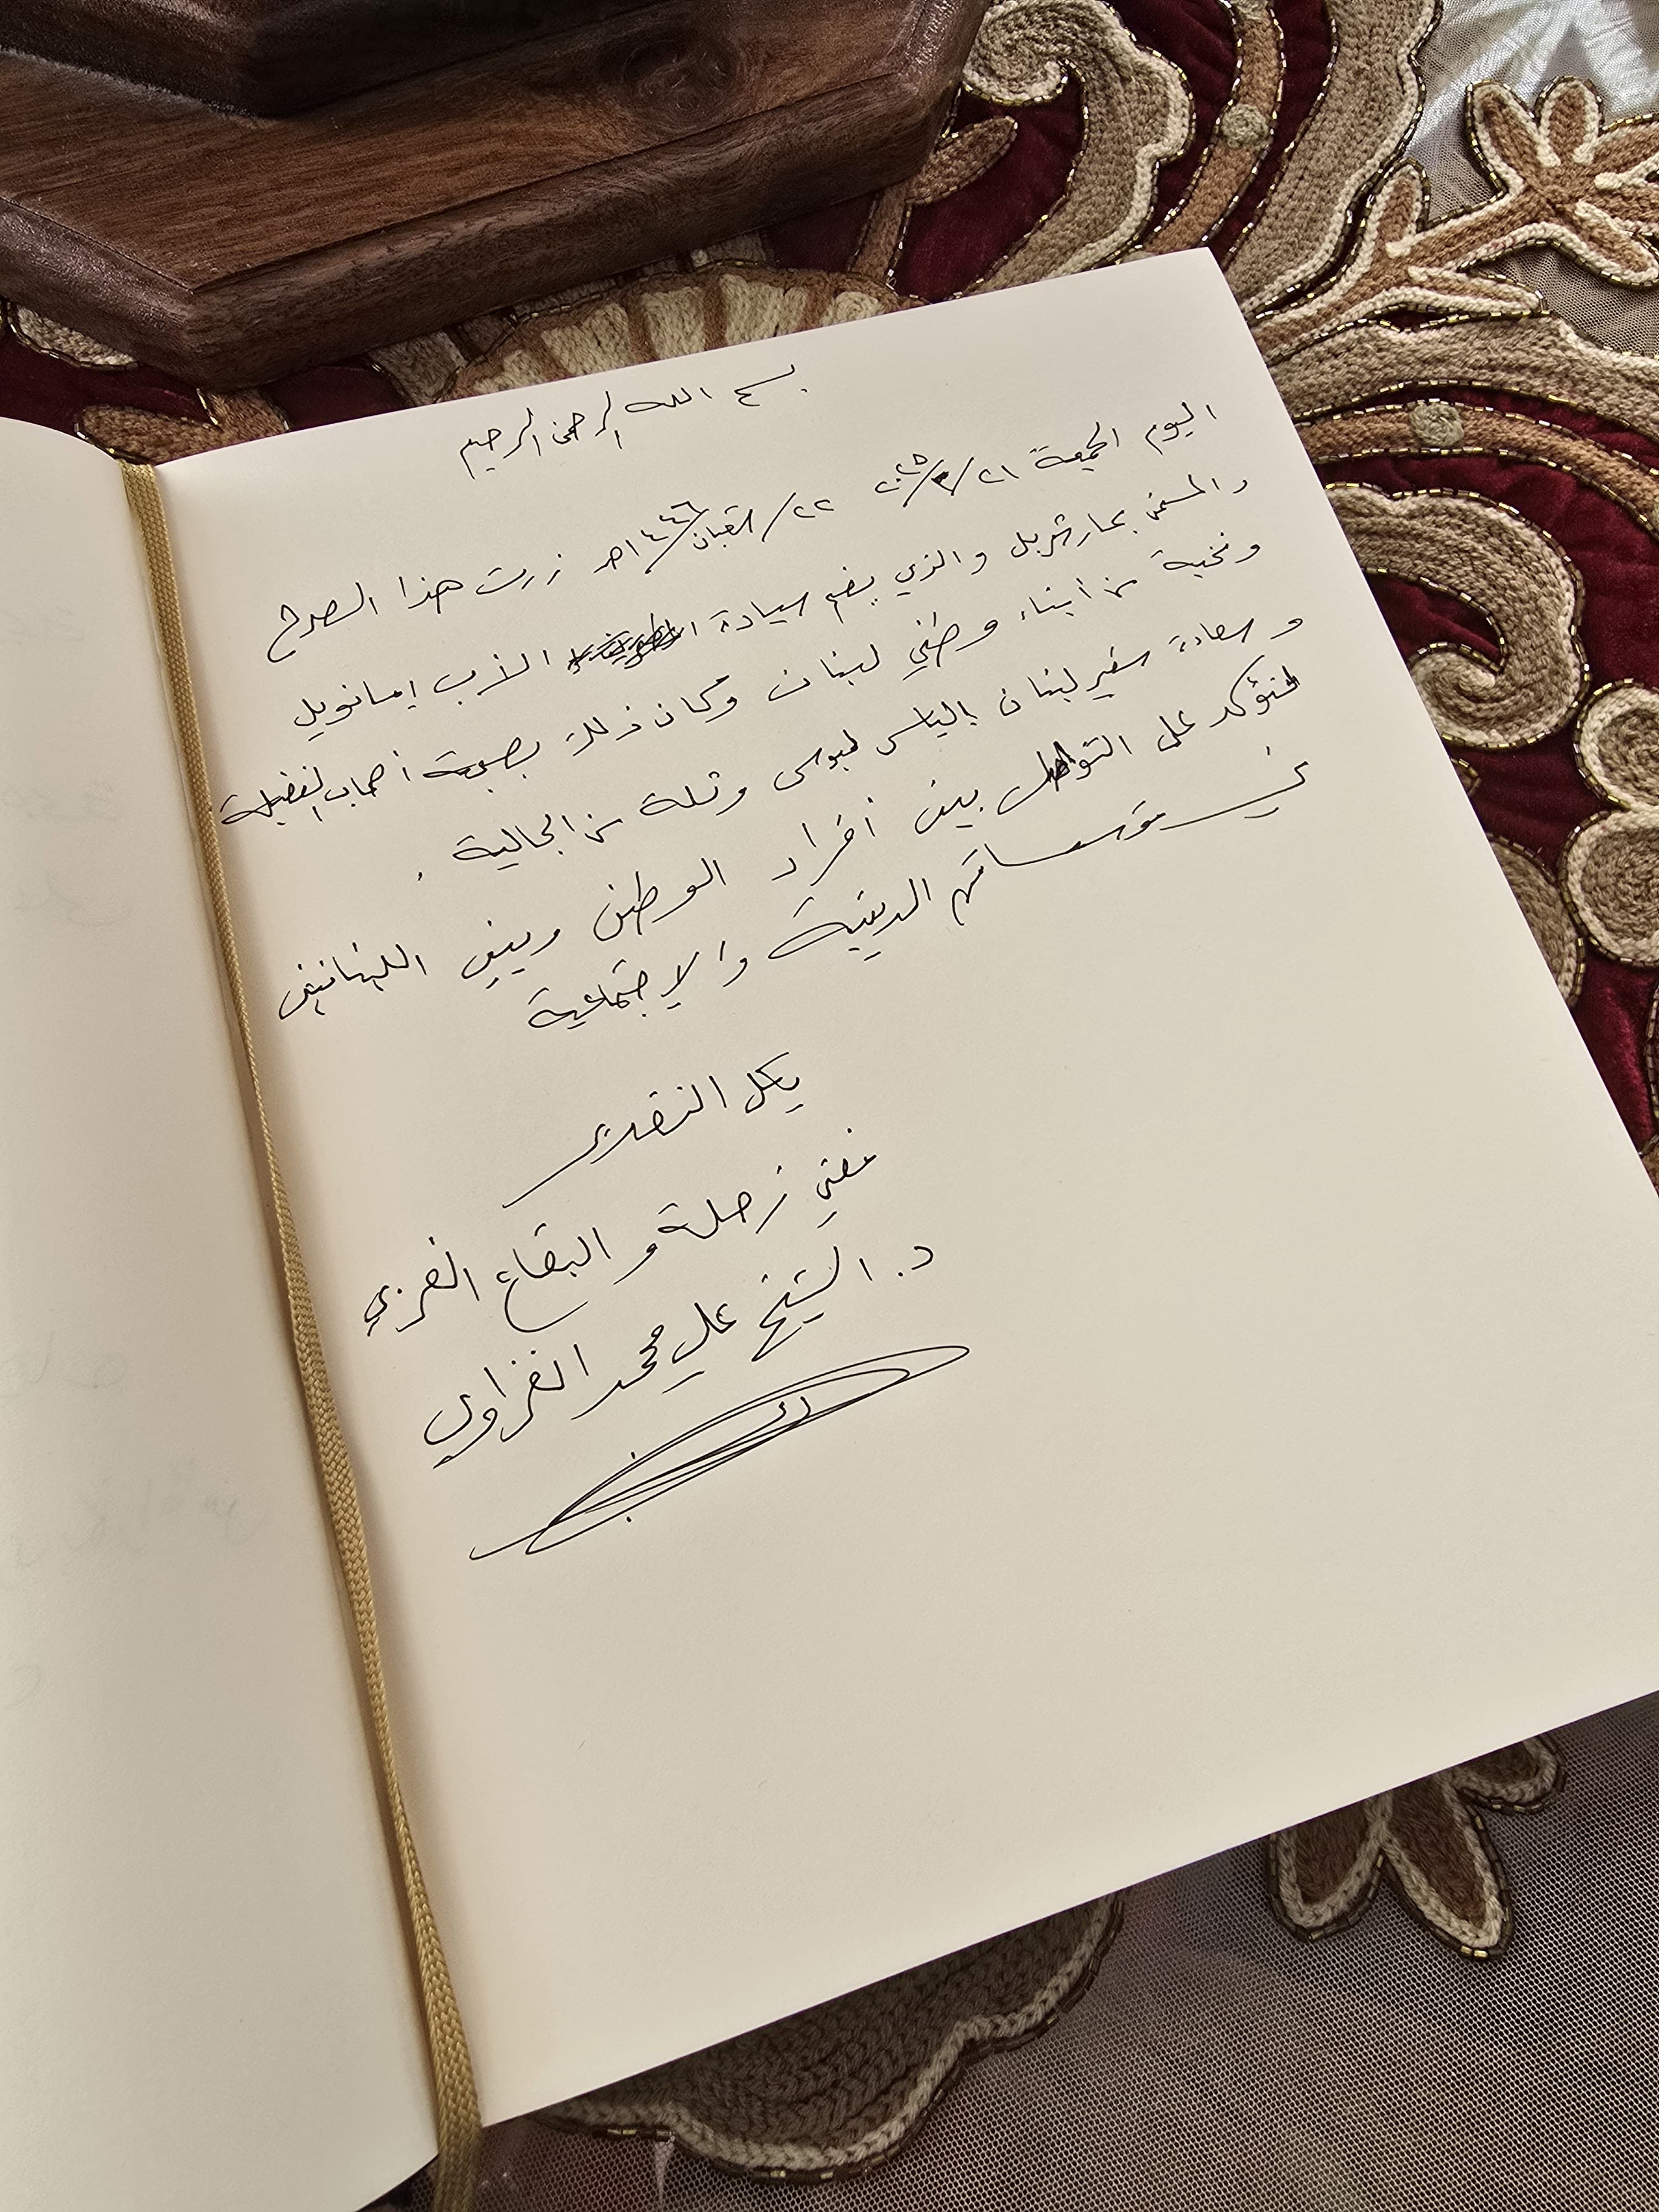 بسم الله الرحمن الرحيم
اليوم الجمعة ٢١/٢/٢٠٢٥ ٢٢/شعبان/١٤٤٦هـ زرت هذا الصرح
والمسمى بمار شربل والذي يضم سيادة الأب إيمانويل
ونخبة من أبناء وطني لبنان وكان ذلك بصحبة أصحاب الفضيلة
وسعادة سفير لبنان بالياس وثلة من الجالية .
لنؤكد على التواصل بين أفراد الوطن وبين اللبنانيين
في مؤسساتهم الدينية والاجتماعية
بكل التقدير
مفتي زحلة والبقاع الغربي
د. الشيخ علي محمد الغزاوي